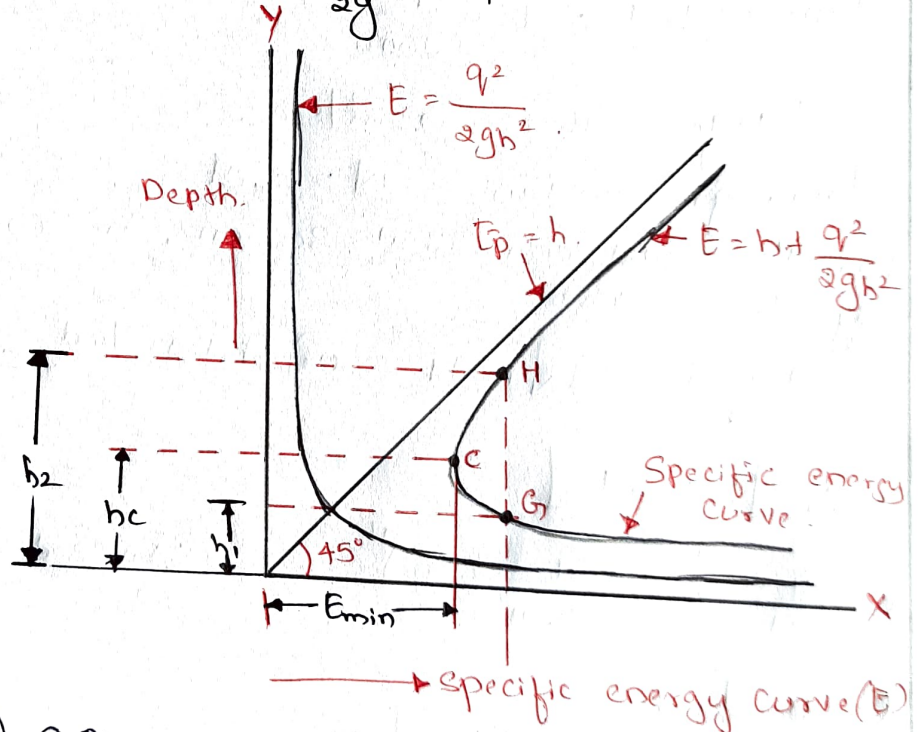 2g
Y
E = q²/2gh²
Depth.
Ep = h.
E = h + q²/2gh²
H
C
h₂
hc
h₁
G
Specific energy
curve.
45°
Emin
X
specific energy curve (E)